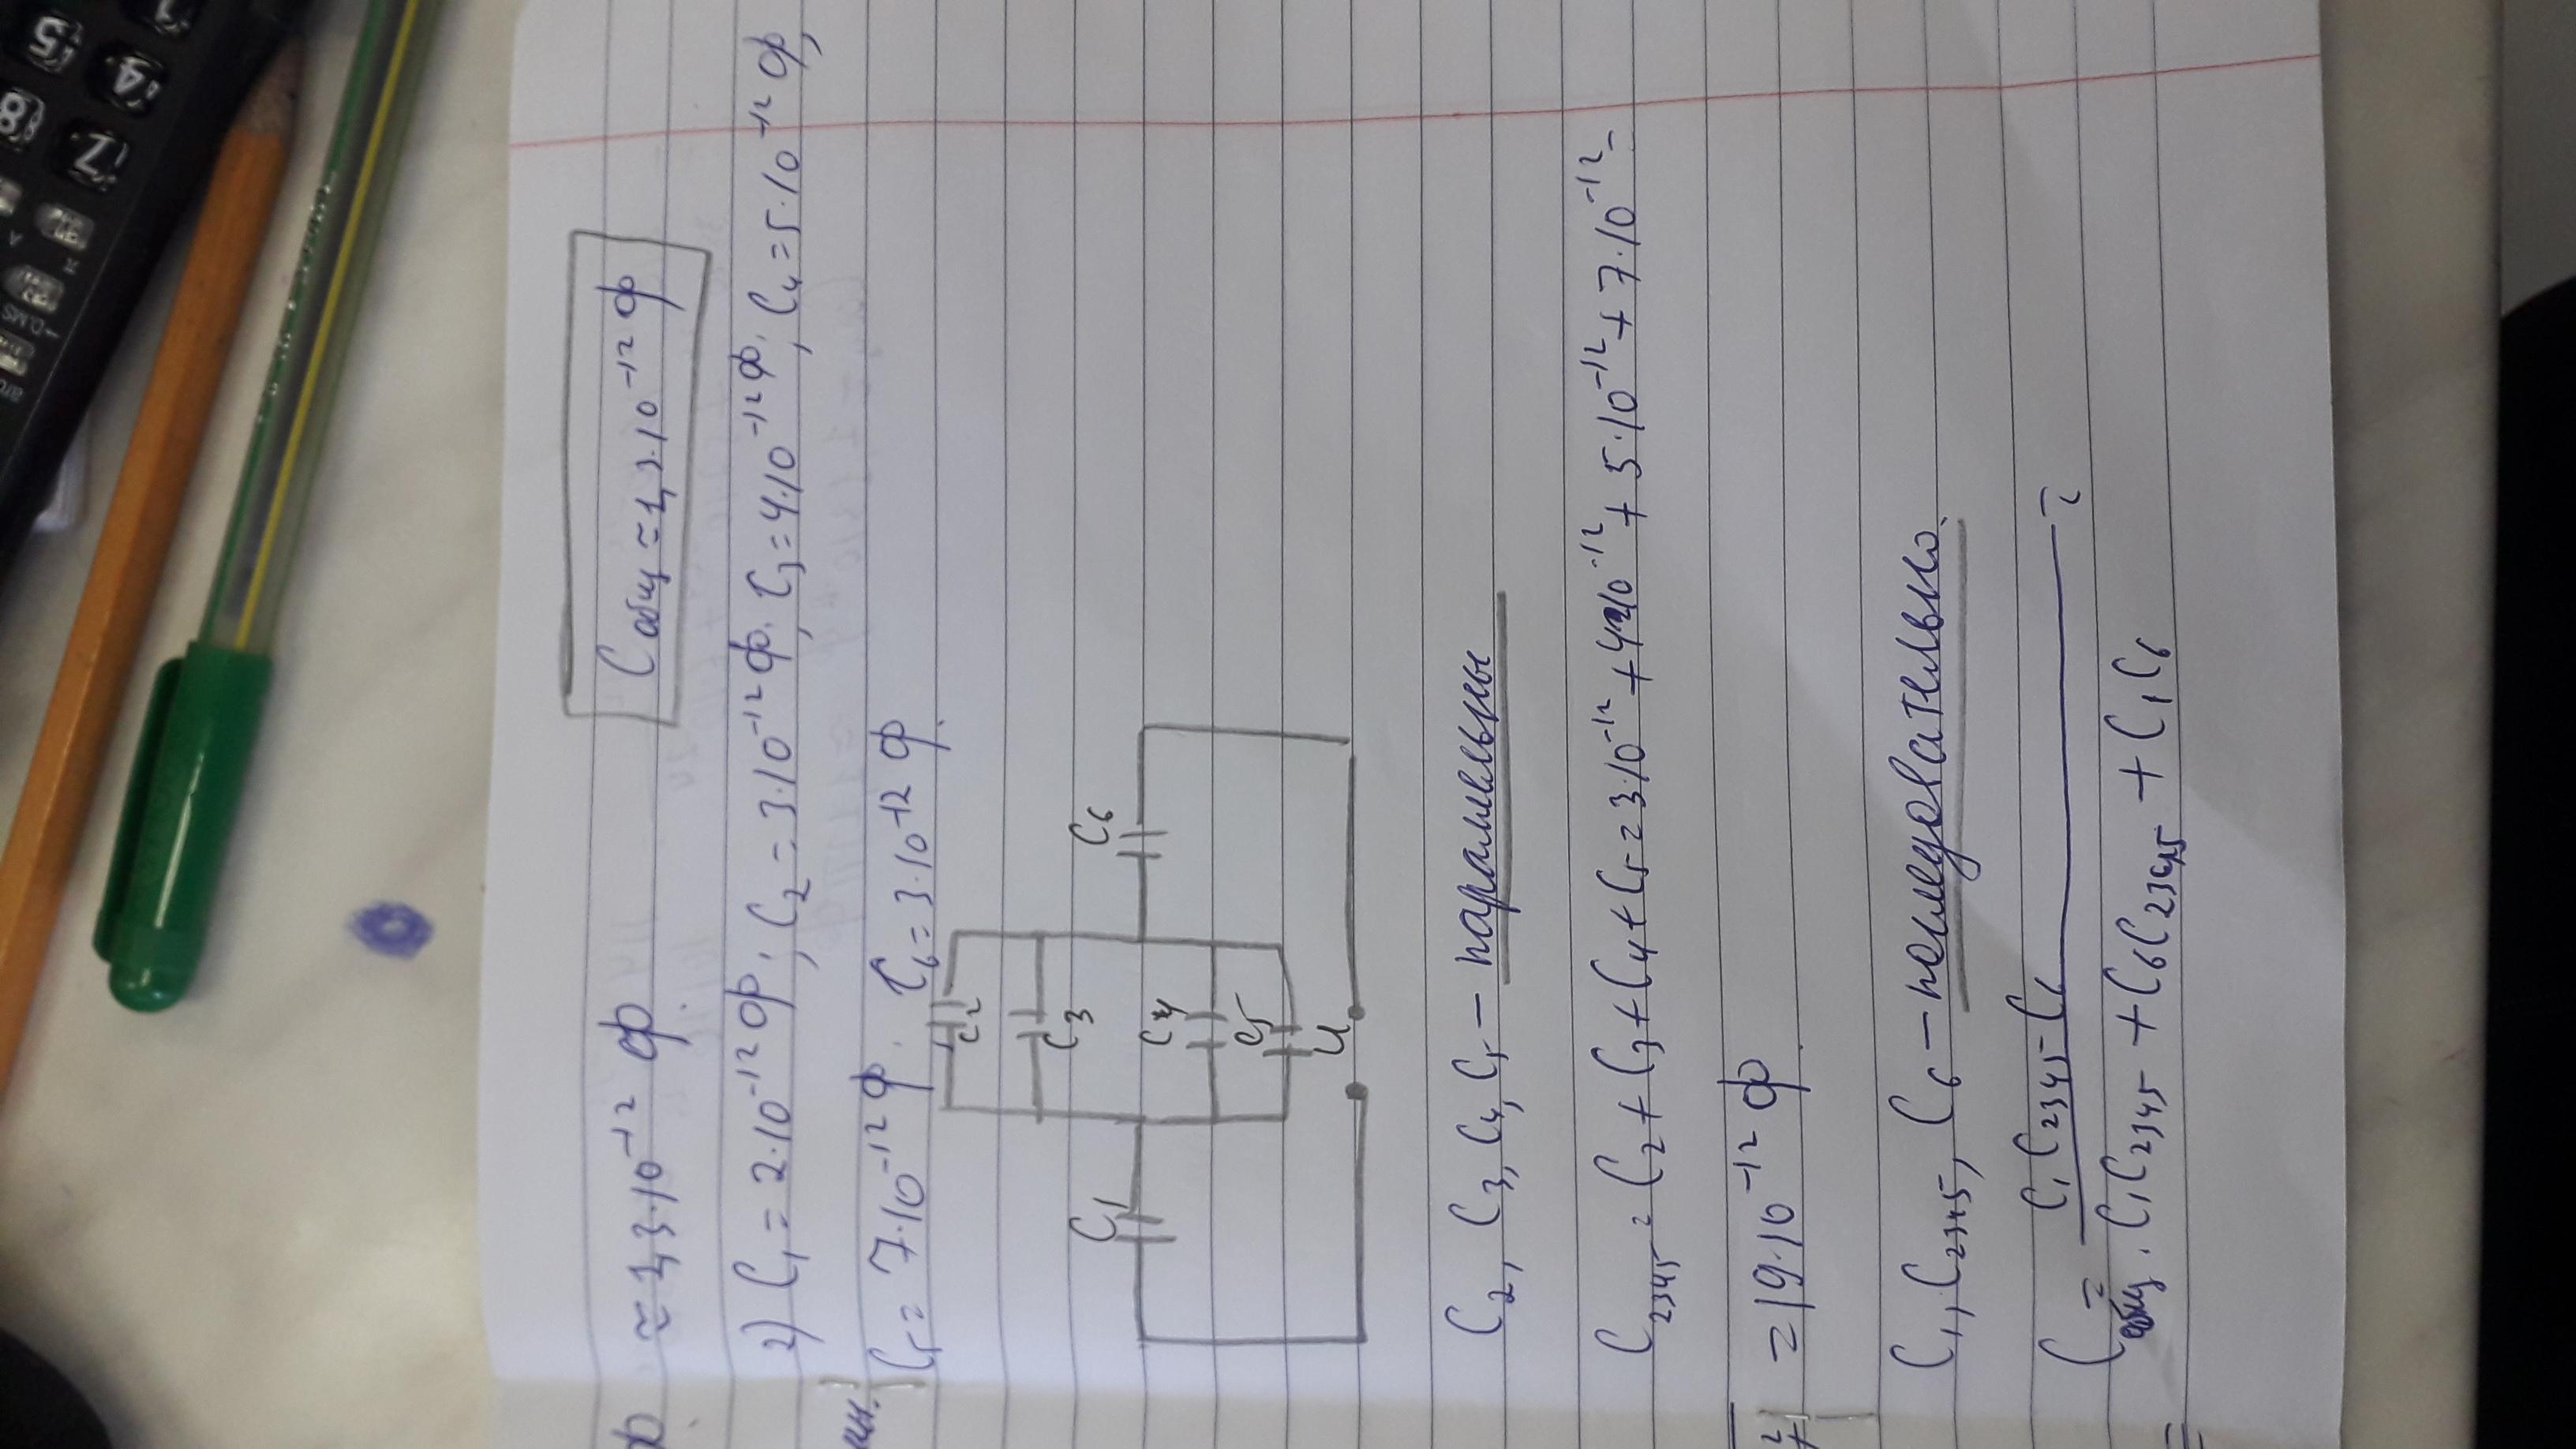 ≃ 1,3·10⁻¹² Ф
Cобщ ≃ 1,3·10⁻¹² Ф
2) C₁ = 2·10⁻¹² Ф; C₂ = 3·10⁻¹² Ф, C₃ = 4·10⁻¹² Ф, C₄ = 5·10⁻¹² Ф,
C₅ = 7·10⁻¹² Ф, C₆ = 3·10⁻¹² Ф.
C₂
C₃
C₁
C₆
C₄
C₅
U
C₂, C₃, C₄, C₅ – параллельны
C₂₃₄₅ = C₂ + C₃ + C₄ + C₅ = 3·10⁻¹² + 4·10⁻¹² + 5·10⁻¹² + 7·10⁻¹² =
= 19·10⁻¹² Ф
C₁, C₂₃₄₅, C₆ – последовательно.
Cобщ. = C₁C₂₃₄₅C₆ =
C₁C₂₃₄₅ + C₆C₂₃₄₅ + C₁C₆